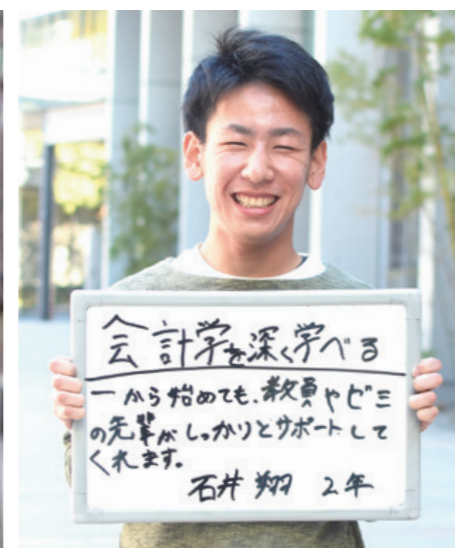 会計学を深く学べる
一から始めても、教員やゼミ
の先輩がしっかりとサポートして
くれます。
石井 翔 2年